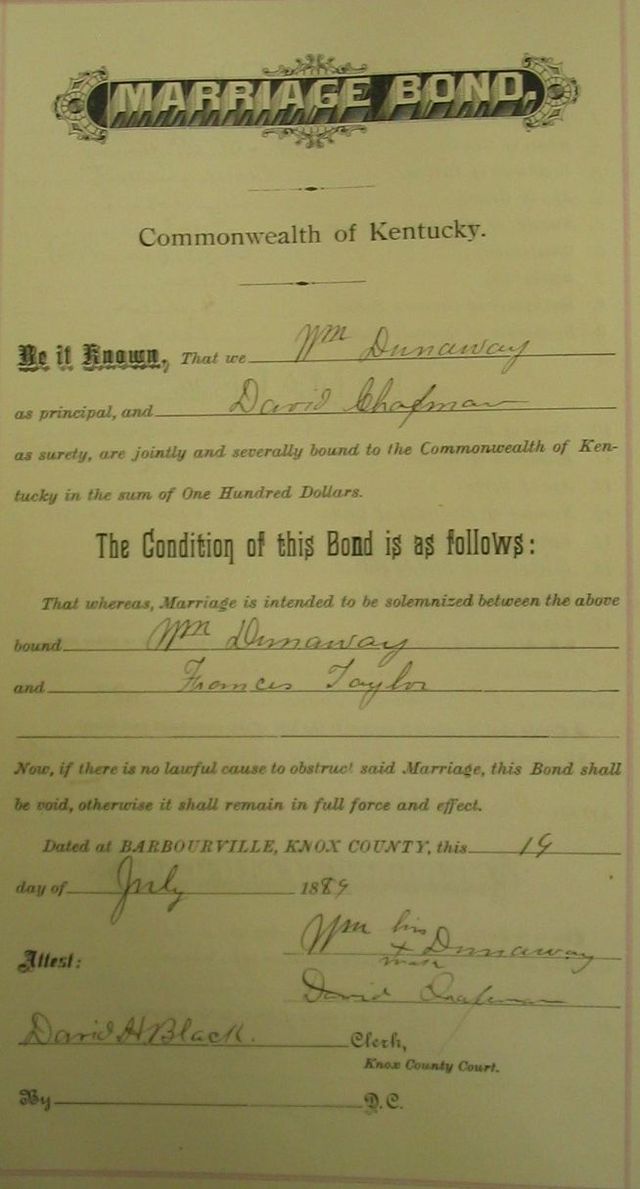 MARRIAGE BOND.
Commonwealth of Kentucky.
Be it Known, That we Wm Dunaway
as principal, and David Chapman
as surety, are jointly and severally bound to the Commonwealth of Ken-
tucky in the sum of One Hundred Dollars.
The Condition of this Bond is as follows:
That whereas, Marriage is intended to be solemnized between the above
bound Wm Dunaway
and Frances Taylor
Now, if there is no lawful cause to obstruct said Marriage, this Bond shall
be void, otherwise it shall remain in full force and effect.
Dated at BARBOURVILLE, KNOX COUNTY, this 19
day of July 1889
Wm his x mark Dunaway
Attest:
David Chapman
David H Black. Clerk,
Knox County Court.
By D.C.